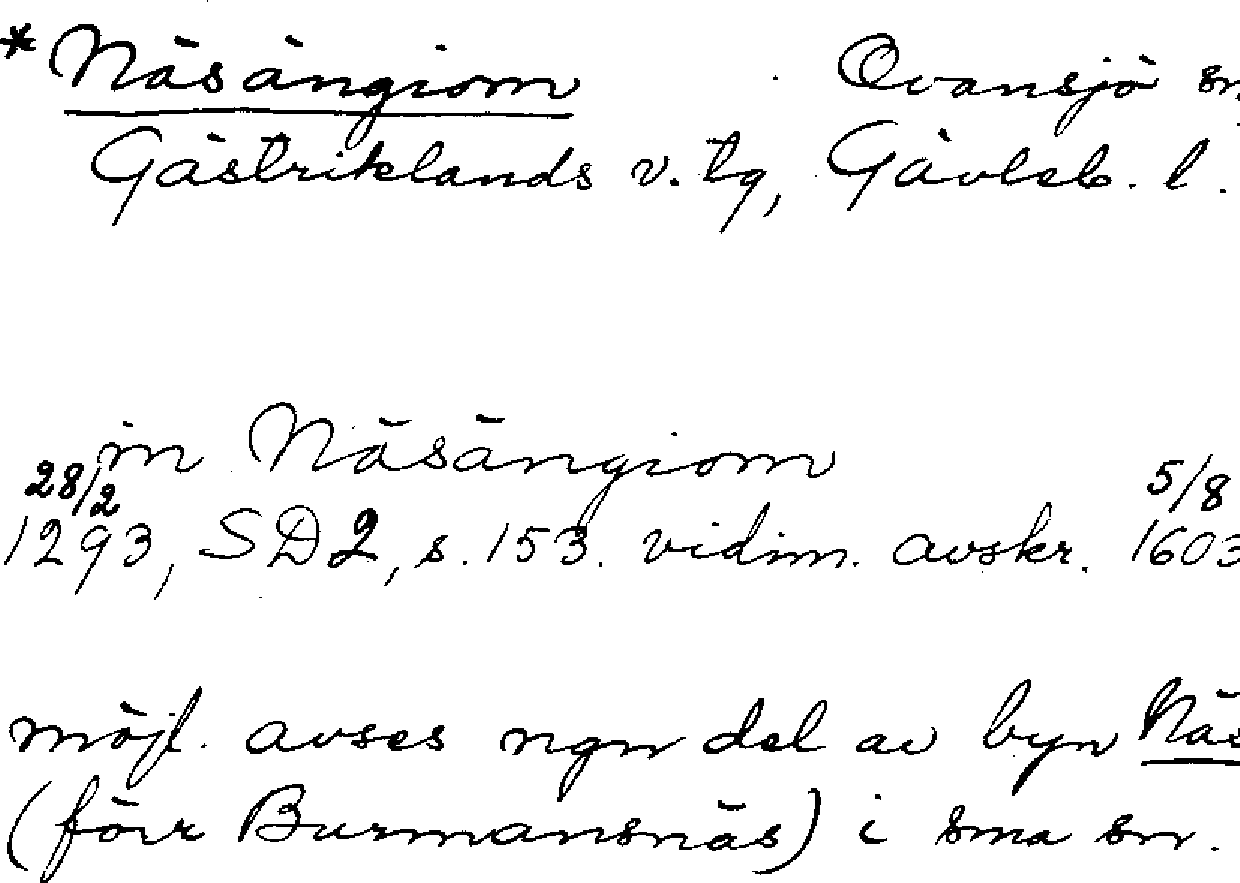 *Näsängiom Ovansjö sn,
Gästriklands v. tg, Gävleb. l.
in Näsängiom
28/2 5/8
1293, SD2, s. 153. vidim. avskr. 1603
möjl. avses ngn del av byn Näs
(förr Burmansnäs) i sma sn.